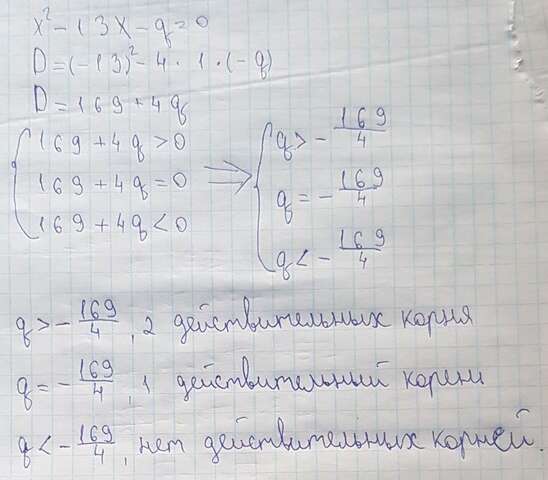 x² - 13x - q = 0
D = (-13)² - 4 · 1 · (-q)
D = 169 + 4q
{ 169 + 4q > 0
169 + 4q = 0
169 + 4q < 0
⇒ { q > - 169/4
q = - 169/4
q < - 169/4
q > - 169/4, 2 действительных корня
q = - 169/4, 1 действительный корень
q < - 169/4, нет действительных корней.